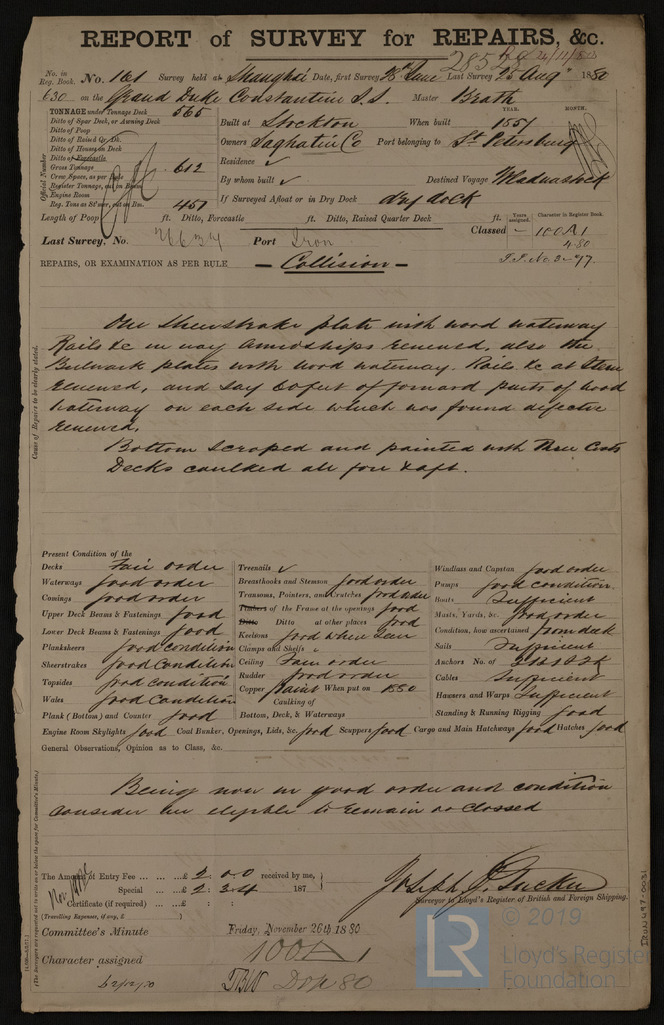 REPORT of SURVEY for REPAIRS, &c.
No. in Reg. Book. No. 161 Survey held at Shanghai Date, first Survey June Last Survey 25 Augt 1880
630 on the Grand Duke Constantine S.S. Master Brath
TONNAGE under Tonnage Deck 565
Ditto of Spar Deck, or Awning Deck
Ditto of Poop
Ditto of Raised Qr. Dk.
Ditto of Houses on Deck
Ditto of Forecastle
Gross Tonnage 612
Crew Space, as per Rule
Register Tonnage, cut on Beam
Engine Room
Reg. Tons as St'mer, cut on Bm. 451
Official Number
Built at Stockton When built 1857
YEAR. MONTH.
Owners Saghatin Co Port belonging to St Petersburg
Residence ✓
By whom built ✓ Destined Voyage Wladivostock
If Surveyed Afloat or in Dry Dock dry dock
Length of Poop ft. Ditto, Forecastle ft. Ditto, Raised Quarter Deck ft.
Years assigned. Character in Register Book.
Classed - 100 A1
4.80
Last Survey, No. 7634 Port Iron
REPAIRS, OR EXAMINATION AS PER RULE — Collision —
Cause of Repairs to be clearly stated.
One Sheerstrake plate with wood waterway
Rails &c in way Amidships renewed, also the
Bulwark plates with wood waterway. Rails &c at Stem
renewed, and say 60 feet of forward parts of wood
waterway on each side which was found defective
renewed.
Bottom scraped and painted with three Coats
Decks caulked all fore & aft.
Present Condition of the
Decks Fair order
Waterways good order
Comings good order
Upper Deck Beams & Fastenings good
Lower Deck Beams & Fastenings good
Planksheers good condition
Sheerstrakes good condition
Topsides good condition
Wales good condition
Plank (Bottom) and Counter good
Treenails ✓
Breasthooks and Stemson good order
Transoms, Pointers, and Crutches good order
Timbers of the Frame at the openings good
Ditto Ditto at other places good
Keelsons good where seen
Clamps and Shelfs ✓
Ceiling Fair order
Rudder good order
Copper paint When put on 1880
Caulking of
Bottom, Deck, & Waterways
Windlass and Capstan good order
Pumps good condition
Boats Sufficient
Masts, Yards, &c. good order
Condition, how ascertained from deck
Sails Sufficient
Anchors No. of
Cables Sufficient
Hawsers and Warps Sufficient
Standing & Running Rigging good
Engine Room Skylights good Coal Bunker, Openings, Lids, &c. good Scuppers good Cargo and Main Hatchways good Hatches good
General Observations, Opinion as to Class, &c.
Being now in good order and condition
consider her eligible to remain as classed
The Amount of Entry Fee £ 2 0 0 received by me,
Special £ 2 3 4 187
Certificate (if required) £ : :
(Travelling Expenses, if any, £ )
Joseph J. Tucker
Surveyor to Lloyd's Register of British and Foreign Shipping.
Committee's Minute Friday, November 26th 1880
Character assigned 100 A 1
IRON 497-0031
© 2019
LR
Lloyd's Register
Foundation